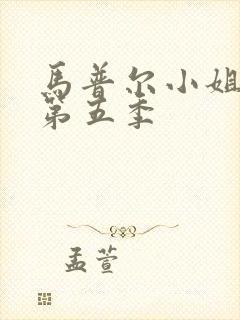 馬普尔小姐
第五季
孟萱